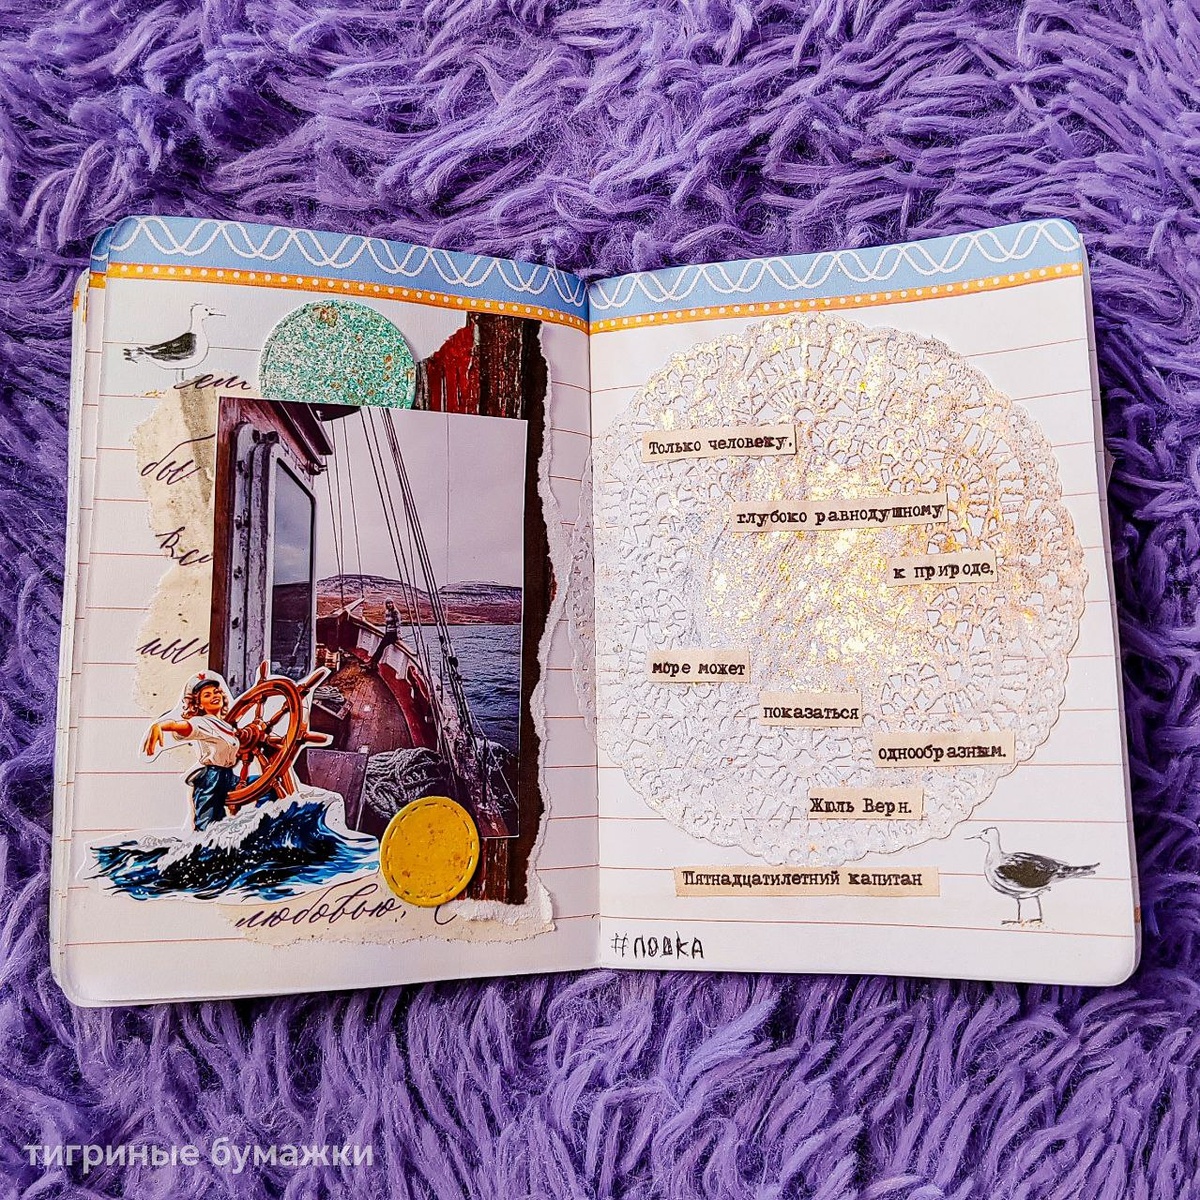 ет
бы
Вел
мы
любовью, С
Только человеку,
глубоко равнодушному
к природе,
море может
показаться
однообразным.
Жюль Верн.
Пятнадцатилетний капитан
#ЛОДКА
тигриные бумажки